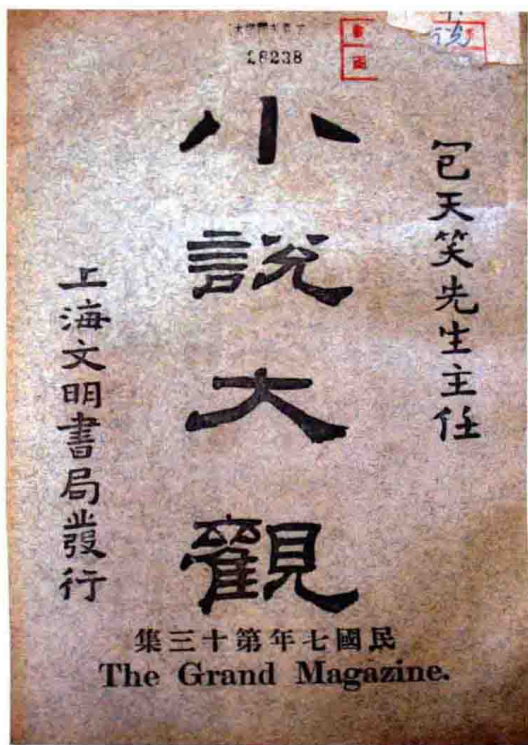 28238
包天笑先生主任
小說大觀
上海文明書局發行
民國七年第十三集
The Grand Magazine.